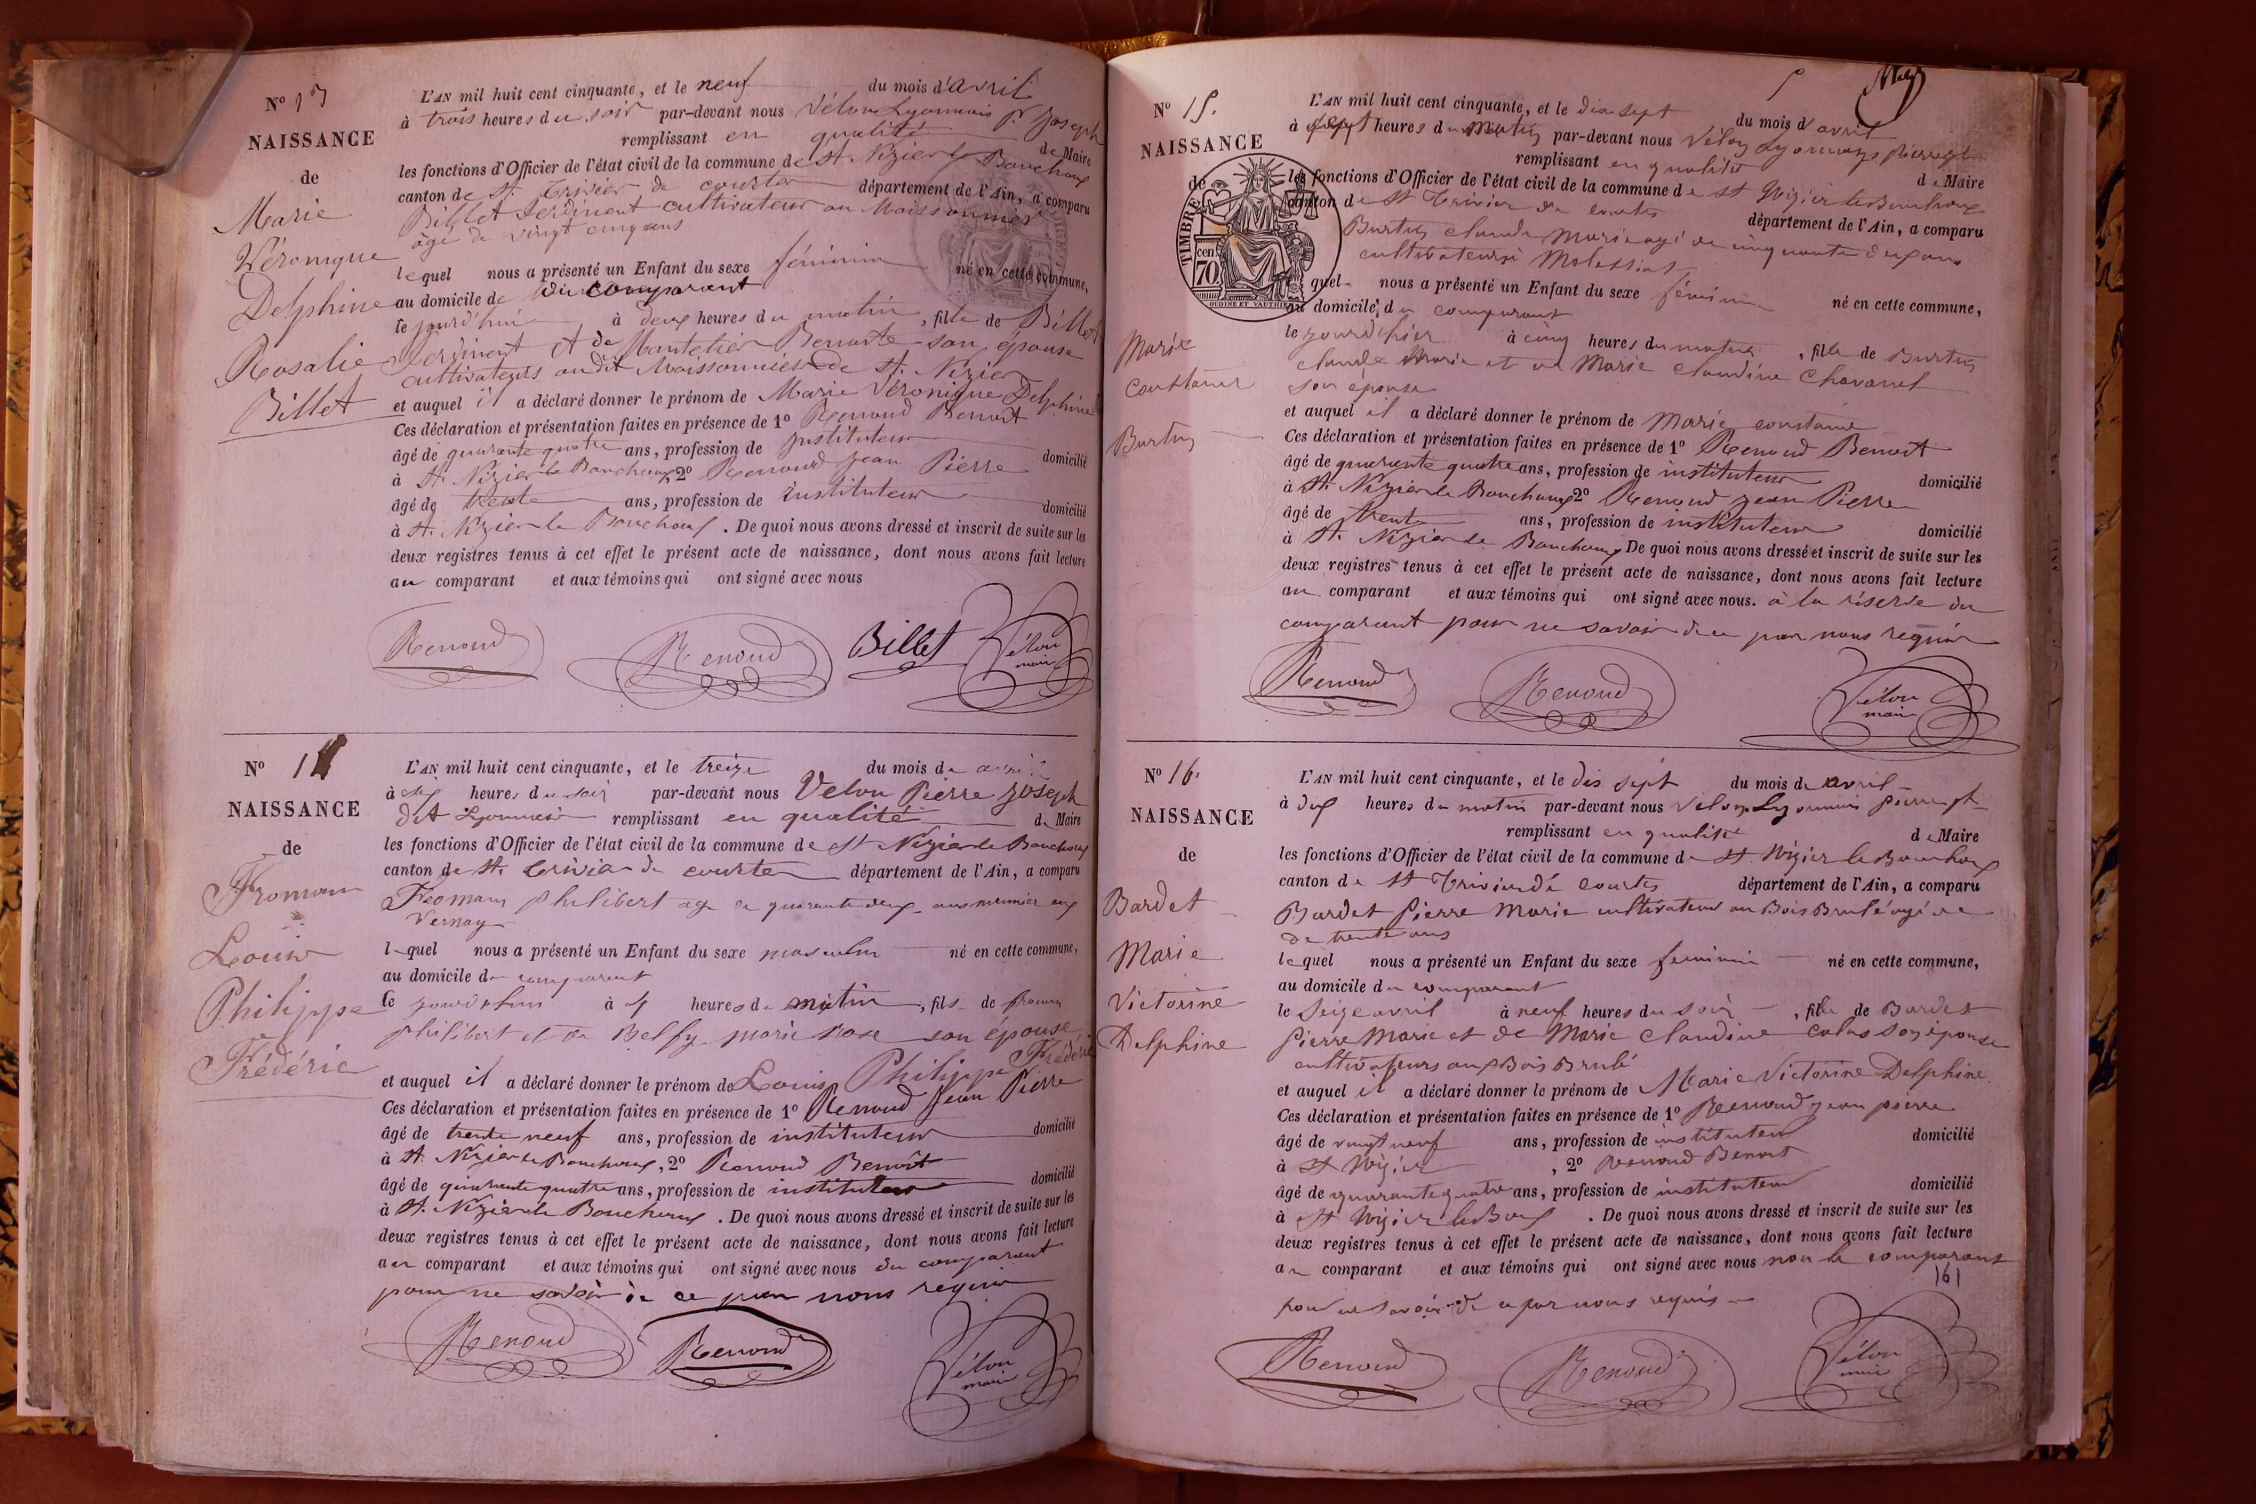 N° 13
NAISSANCE
de
Marie
Véronique
Delphine
Rosalie
Billet
L'AN mil huit cent cinquante, et le neuf du mois d'avril
à trois heures du soir par-devant nous Vélon Lyonnais Pre Joseph
remplissant en qualité de Maire
les fonctions d'Officier de l'état civil de la commune de St. Nizier le Bouchoux
canton de St. Trivier de courtes département de l'Ain, a comparu
Billet Ferdinent cultivateur au Moissonnier
âgé de vingt cinq ans
lequel nous a présenté un Enfant du sexe féminin né en cette commune,
au domicile de du comparant
le jourd'hui à deux heures du matin, fille de Billet
Ferdinent et de Mantelier Benoite son épouse
cultivateurs au dit Moissonnier de St. Nizier
et auquel il a déclaré donner le prénom de Marie Véronique Delphine
Ces déclaration et présentation faites en présence de 1° Renoud Benoit
âgé de quarante quatre ans, profession de instituteur domicilié
à St. Nizier le Bouchoux, 2° Renoud Jean Pierre
âgé de trente ans, profession de instituteur domicilié
à St. Nizier le Bouchoux. De quoi nous avons dressé et inscrit de suite sur les
deux registres tenus à cet effet le présent acte de naissance, dont nous avons fait lecture
au comparant et aux témoins qui ont signé avec nous
Renoud Renoud Billet Vélon
maire
N° 14
NAISSANCE
de
Froman
Louis
Philippe
Frédéric
L'AN mil huit cent cinquante, et le treize du mois de avril
à heures du soir par-devant nous Velon Pierre Joseph
dit Lyonnais remplissant en qualité de Maire
les fonctions d'Officier de l'état civil de la commune de St Nizier le Bouchoux
canton de St. Trivier de courtes département de l'Ain, a comparu
Froman philibert age de quarante deux ans meunier aux
Vernay
lequel nous a présenté un Enfant du sexe masculin né en cette commune,
au domicile du comparant
le jourdhui à heures du matin, fils de froman
philibert et de Belfy marie rose son epouse
et auquel il a déclaré donner le prénom de Louis Philippe Frédéric
Ces déclaration et présentation faites en présence de 1° Renoud Jean Pierre
âgé de trente neuf ans, profession de instituteur domicilié
à St. Nizier le Bouchoux, 2° Renoud Benoît
âgé de quarante quatre ans, profession de instituteur domicilié
à St. Nizier le Bouchoux. De quoi nous avons dressé et inscrit de suite sur les
deux registres tenus à cet effet le présent acte de naissance, dont nous avons fait lecture
au comparant et aux témoins qui ont signé avec nous du comparant
pour ne savoir de ce par nous requis
Renoud Renoud Vélon
maire
N° 15.
NAISSANCE
de
TIMBRE
70 cen
OUDINE ET VAUTHIER
Marie
constance
Burtin
L'AN mil huit cent cinquante, et le dix sept du mois d avril
à sept heures du matin par-devant nous Vélon Lyonnais pierre jh
remplissant en qualité de Maire
les fonctions d'Officier de l'état civil de la commune de St Nizier le Bouchoux
canton de St Trivier de courtes département de l'Ain, a comparu
Burtin claude Marie agé de cinquante deux ans
cultivateur à Molissiat
quel nous a présenté un Enfant du sexe féminin né en cette commune,
au domicile du comparant
le jourd'hier à cinq heures du matin, fille de Burtin
claude Marie et de Marie claudine Chavanel
son épouse
et auquel il a déclaré donner le prénom de Marie constance
Ces déclaration et présentation faites en présence de 1° Renoud Benoit
âgé de quarante quatre ans, profession de instituteur domicilié
à St. Nizier le Bouchoux 2° Renoud Jean Pierre
âgé de trente ans, profession de instituteur domicilié
à St. Nizier le Bouchoux De quoi nous avons dressé et inscrit de suite sur les
deux registres tenus à cet effet le présent acte de naissance, dont nous avons fait lecture
au comparant et aux témoins qui ont signé avec nous. à la réserve du
comparant pour ne savoir de ce par nous requis
Renoud Renoud Vélon
maire
N° 16.
NAISSANCE
de
Bardet
Marie
Victorine
Delphine
L'AN mil huit cent cinquante, et le dis sept du mois de avril
à dix heures du matin par-devant nous Velon Lyonnais pierre jh
remplissant en qualité de Maire
les fonctions d'Officier de l'état civil de la commune de St Nizier le Bouchoux
canton de St Trivier de courtes département de l'Ain, a comparu
Bardet pierre Marie cultivateur au Bois Brulé agé de
de trente ans
lequel nous a présenté un Enfant du sexe feminin né en cette commune,
au domicile du comparant
le Seize avril à neuf heures du soir, fille de Bardet
pierre Marie et de Marie claudine colas son épouse
cultivateurs au Bois Brulé
et auquel il a déclaré donner le prénom de Marie Victorine Delphine
Ces déclaration et présentation faites en présence de 1° Renoud jean pierre
âgé de vingt neuf ans, profession de instituteur domicilié
à St Nizier, 2° Renoud Benoit
âgé de quarante quatre ans, profession de instituteur domicilié
à St Nizier le Boux. De quoi nous avons dressé et inscrit de suite sur les
deux registres tenus à cet effet le présent acte de naissance, dont nous avons fait lecture
au comparant et aux témoins qui ont signé avec nous non le comparant
161
pour ne savoir de ce par nous requis
Renoud Renoud Vélon
maire